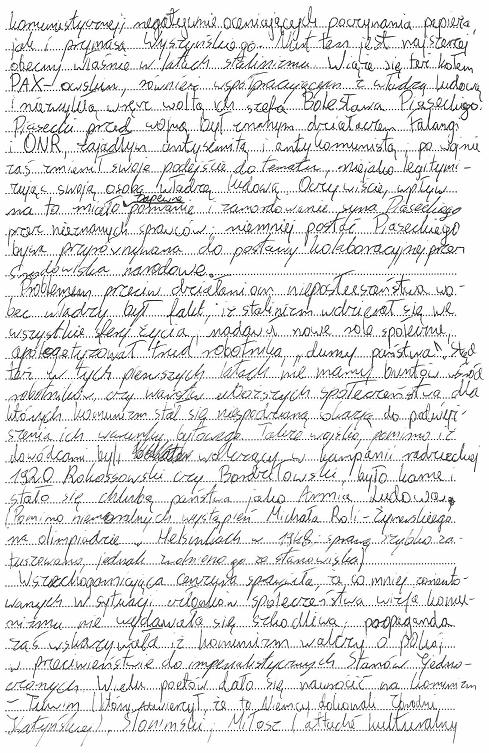 komunistycznej negatywnie oceniających poczynania papieża,
jak i prymasa Wyszyńskiego. Nurt ten jest najszerzej
obecny właśnie w latach stalinizmu. Wiąże się też kołem
PAX-owskim, również współpracującym z władzą ludową
i niezwykłą wręcz woltą ich szefa Bolesława Piaseckiego.
Piasecki przed wojną był znanym działaczem Falangi
i ONR, zajadłym antysemitą i antykomunistą, po wojnie
zaś zmienił swoje podejście do tematu, niejako legitymi-
zując swoją osobą władzę ludową. Oczywiście, wpływ
na to miało zapewne porwanie i zamordowanie syna Piaseckiego
przez nieznanych sprawców, niemniej postać Piaseckiego
bywa przyrównywana do postawy kolaboracyjnej przez
środowiska narodowe.
Problemem przeciw działaniom nieposłuszeństwa wo-
bec władzy był fakt, iż stalinizm wdzierał się we
wszystkie sfery życia, nadawał nowe role społeczne,
apologetyzował trud robotnika, "dumy państwa". Stąd
też w tych pierwszych latach nie mamy buntów wśród
robotników, czy warstw uboższych społeczeństwa dla
których komunizm stał się niespodzianą okazją do polepsze-
szenia ich warunku bytowego. Także wojsko, pomimo iż
dowódcami byli walczący w kampanii radzieckiej
1920 Rokossowski czy Bordziłowski, było karne i
stało się chlubą państwa jako Armia Ludowa.
(Pomimo niemoralnych wystąpień Michała Roli-Żymierskiego
na olimpiadzie w Helsinkach w 1948 sprawę szybko za-
tuszowano, jednak zwolniono go ze stanowiska)
Wszechogarniająca cenzura sprawiała, że co mniej zoriento-
wanych w sytuacji członków społeczeństwa wizja komu-
nizmu nie wydawała się szkodliwa, propaganda
zaś wskazywała iż komunizm walczy o pokój
w przeciwieństwie do imperialistycznych Stanów Zjedno-
czonych. Wielu poetów dało się nawrócić na komunizm
- Tuwim (który uwierzył, że to Niemcy dokonali zbrodni
Katyńskiej), Słonimski, Miłosz (attaché kulturalny